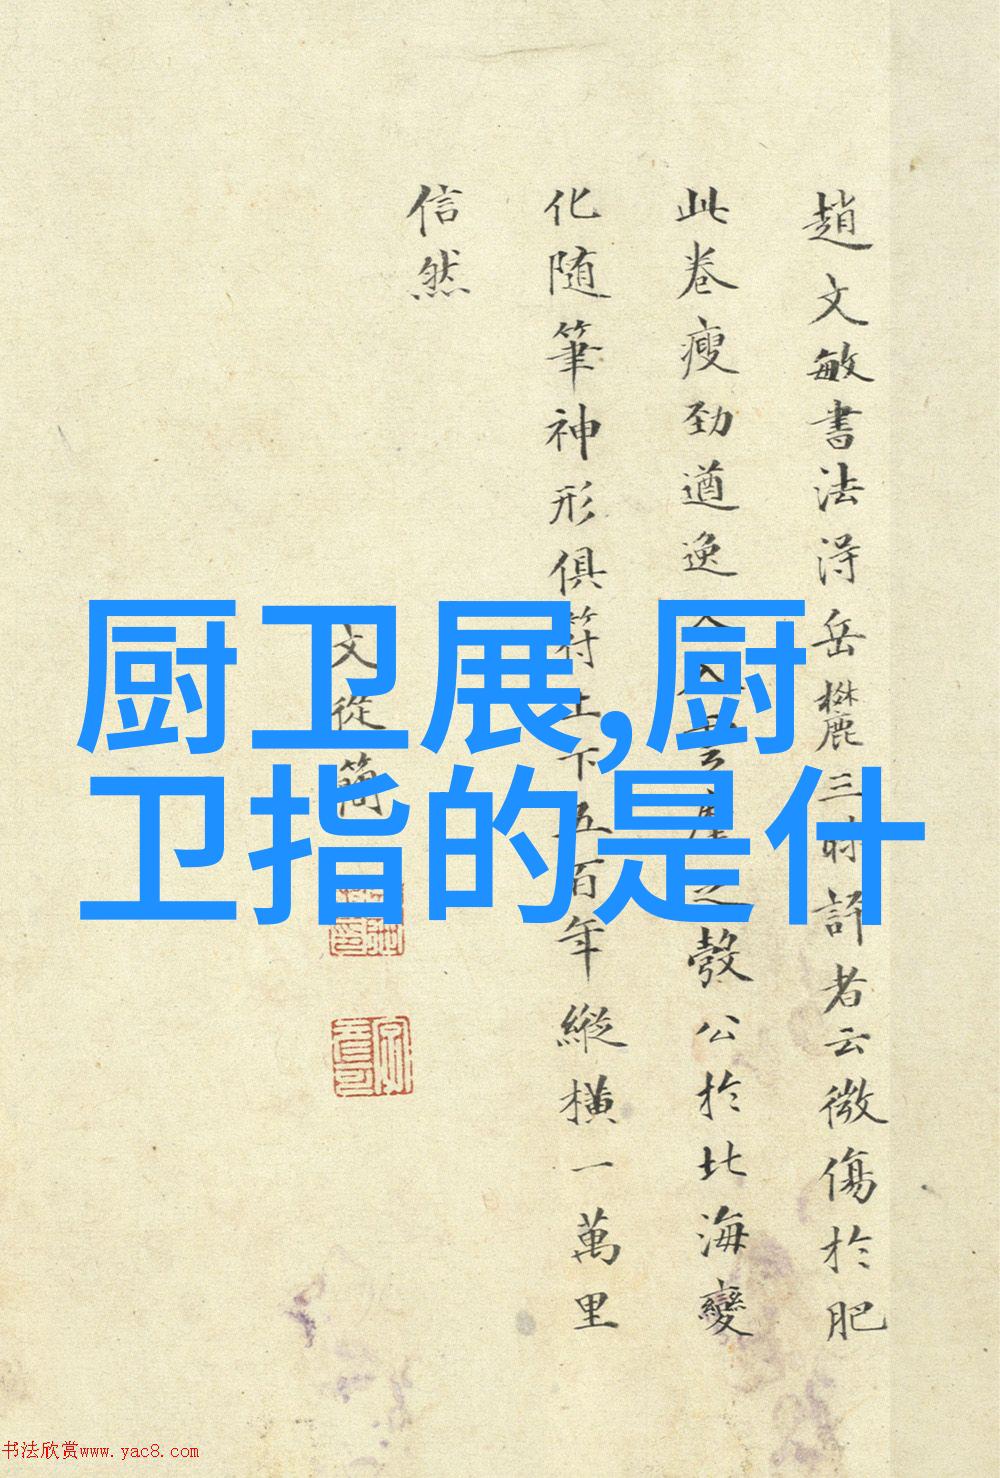 趙文敏書法淂岳麓三時評者云微傷於肥
此卷瘦勁遒逸
之彀公於北海變
化随筆神形俱符上下五百年縱橫一萬里
信然
文從簡
厨卫展,厨
卫指的是什
书法欣赏www.yac8.com